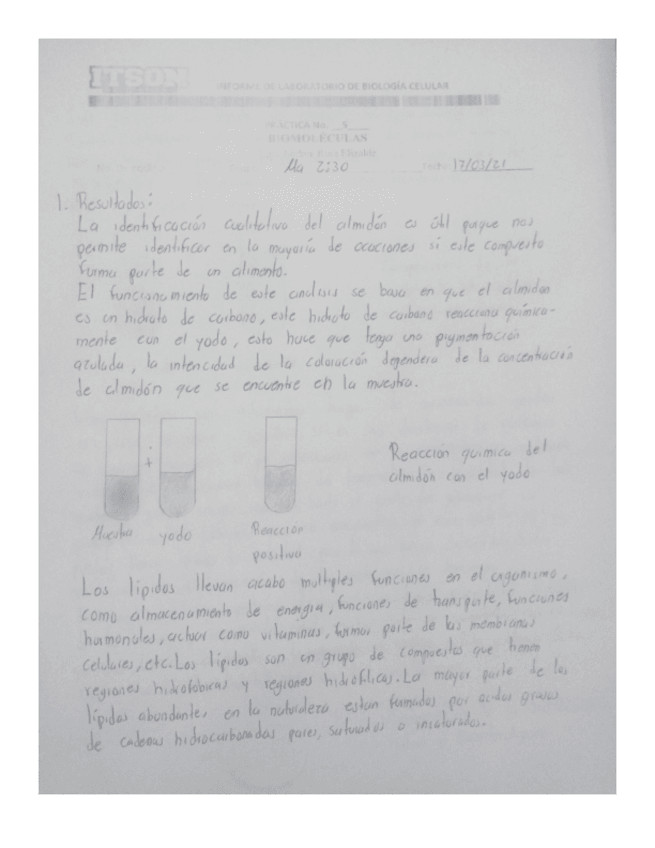 ITSON
INFORME DE LABORATORIO DE BIOLOGÍA CELULAR
PRÁCTICA No. 9
BIOMOLÉCULAS
Ma 2:30 Fecha 17/03/21
1. Resultados:
La identificación cualitativa del almidón es útil porque nos
permite identificar en la mayoría de ocaciones si este compuesto
forma parte de un alimento.
El funcionamiento de este analisis se basa en que el almidon
es un hidrato de carbono, este hidrato de carbono reacciona química-
mente con el yodo, esto hace que tenga una pigmentación
azulada, la intencidad de la coloración dependera de la concentración
de almidón que se encuentre en la muestra.
+
Reacción química del
almidón con el yodo
Muestra yodo Reacción
positiva
Los lípidos llevan acabo multiples funciones en el organismo,
como almacenamiento de energía, funciones de transporte, funciones
hormonales, actuar como vitaminas, formar parte de las membranas
celulares, etc. Los lípidos son un grupo de compuestos que tienen
regiones hidrofóbicas y regiones hidrofílicas. La mayor parte de los
lípidos abundantes en la naturaleza estan formados por acidos grasos
de cadenas hidrocarbonadas pares, saturados o insaturados.